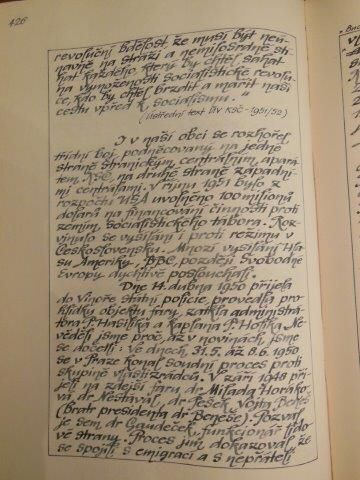 426
revoluční bdělost, že musí být neú-
navně na stráži a nemilosrdně stí-
hat každého, který by chtěl sahat
na vymoženosti socialistické revolu-
ce, kdo by chtěl brzdit a mařit naši
cestu vpřed k socialismu."
(Ústřední text ÚV KSČ - 1951/52)
I v naší obci se rozhořel
třídní boj, podněcovaný na jedné
straně stranickým, centrálním apará-
tem KSČ, na druhé straně západní-
mi centrálami. V říjnu 1951 bylo z
rozpočtu USA uvolněno 100 milionů
dolarů na financování činnosti proti
zemím socialistického tábora. Roz-
vinulo se vysílání proti režimu v
Československu. Mnozí vysílání Hla-
su Ameriky, BBC, později Svobodné
Evropy dychtivě poslouchali.
Dne 14. dubna 1950 přijela
do Vinoře státní policie, provedla pro-
hlídku objektu fary, zatkla administrá-
tora P. Hasilíka a kaplana P. Hoška. Ne-
věděli jsme proč, až v novinách jsme
se dočetli: Ve dnech 31.5. až 8.6. 1950
se v Praze konal soudní proces proti
skupině vlastizrádců. V září 1948 při-
jeli na zdejší faru dr Milada Horáko-
vá, dr Nestával, dr Pešek, Vojta Beneš
(bratr presidenta dr Beneše). Pozval
je sem dr Gaudeček, funkcionář lido-
vé strany. Proces jim dokazoval, že
se spojili s emigrací a s nepřáteli